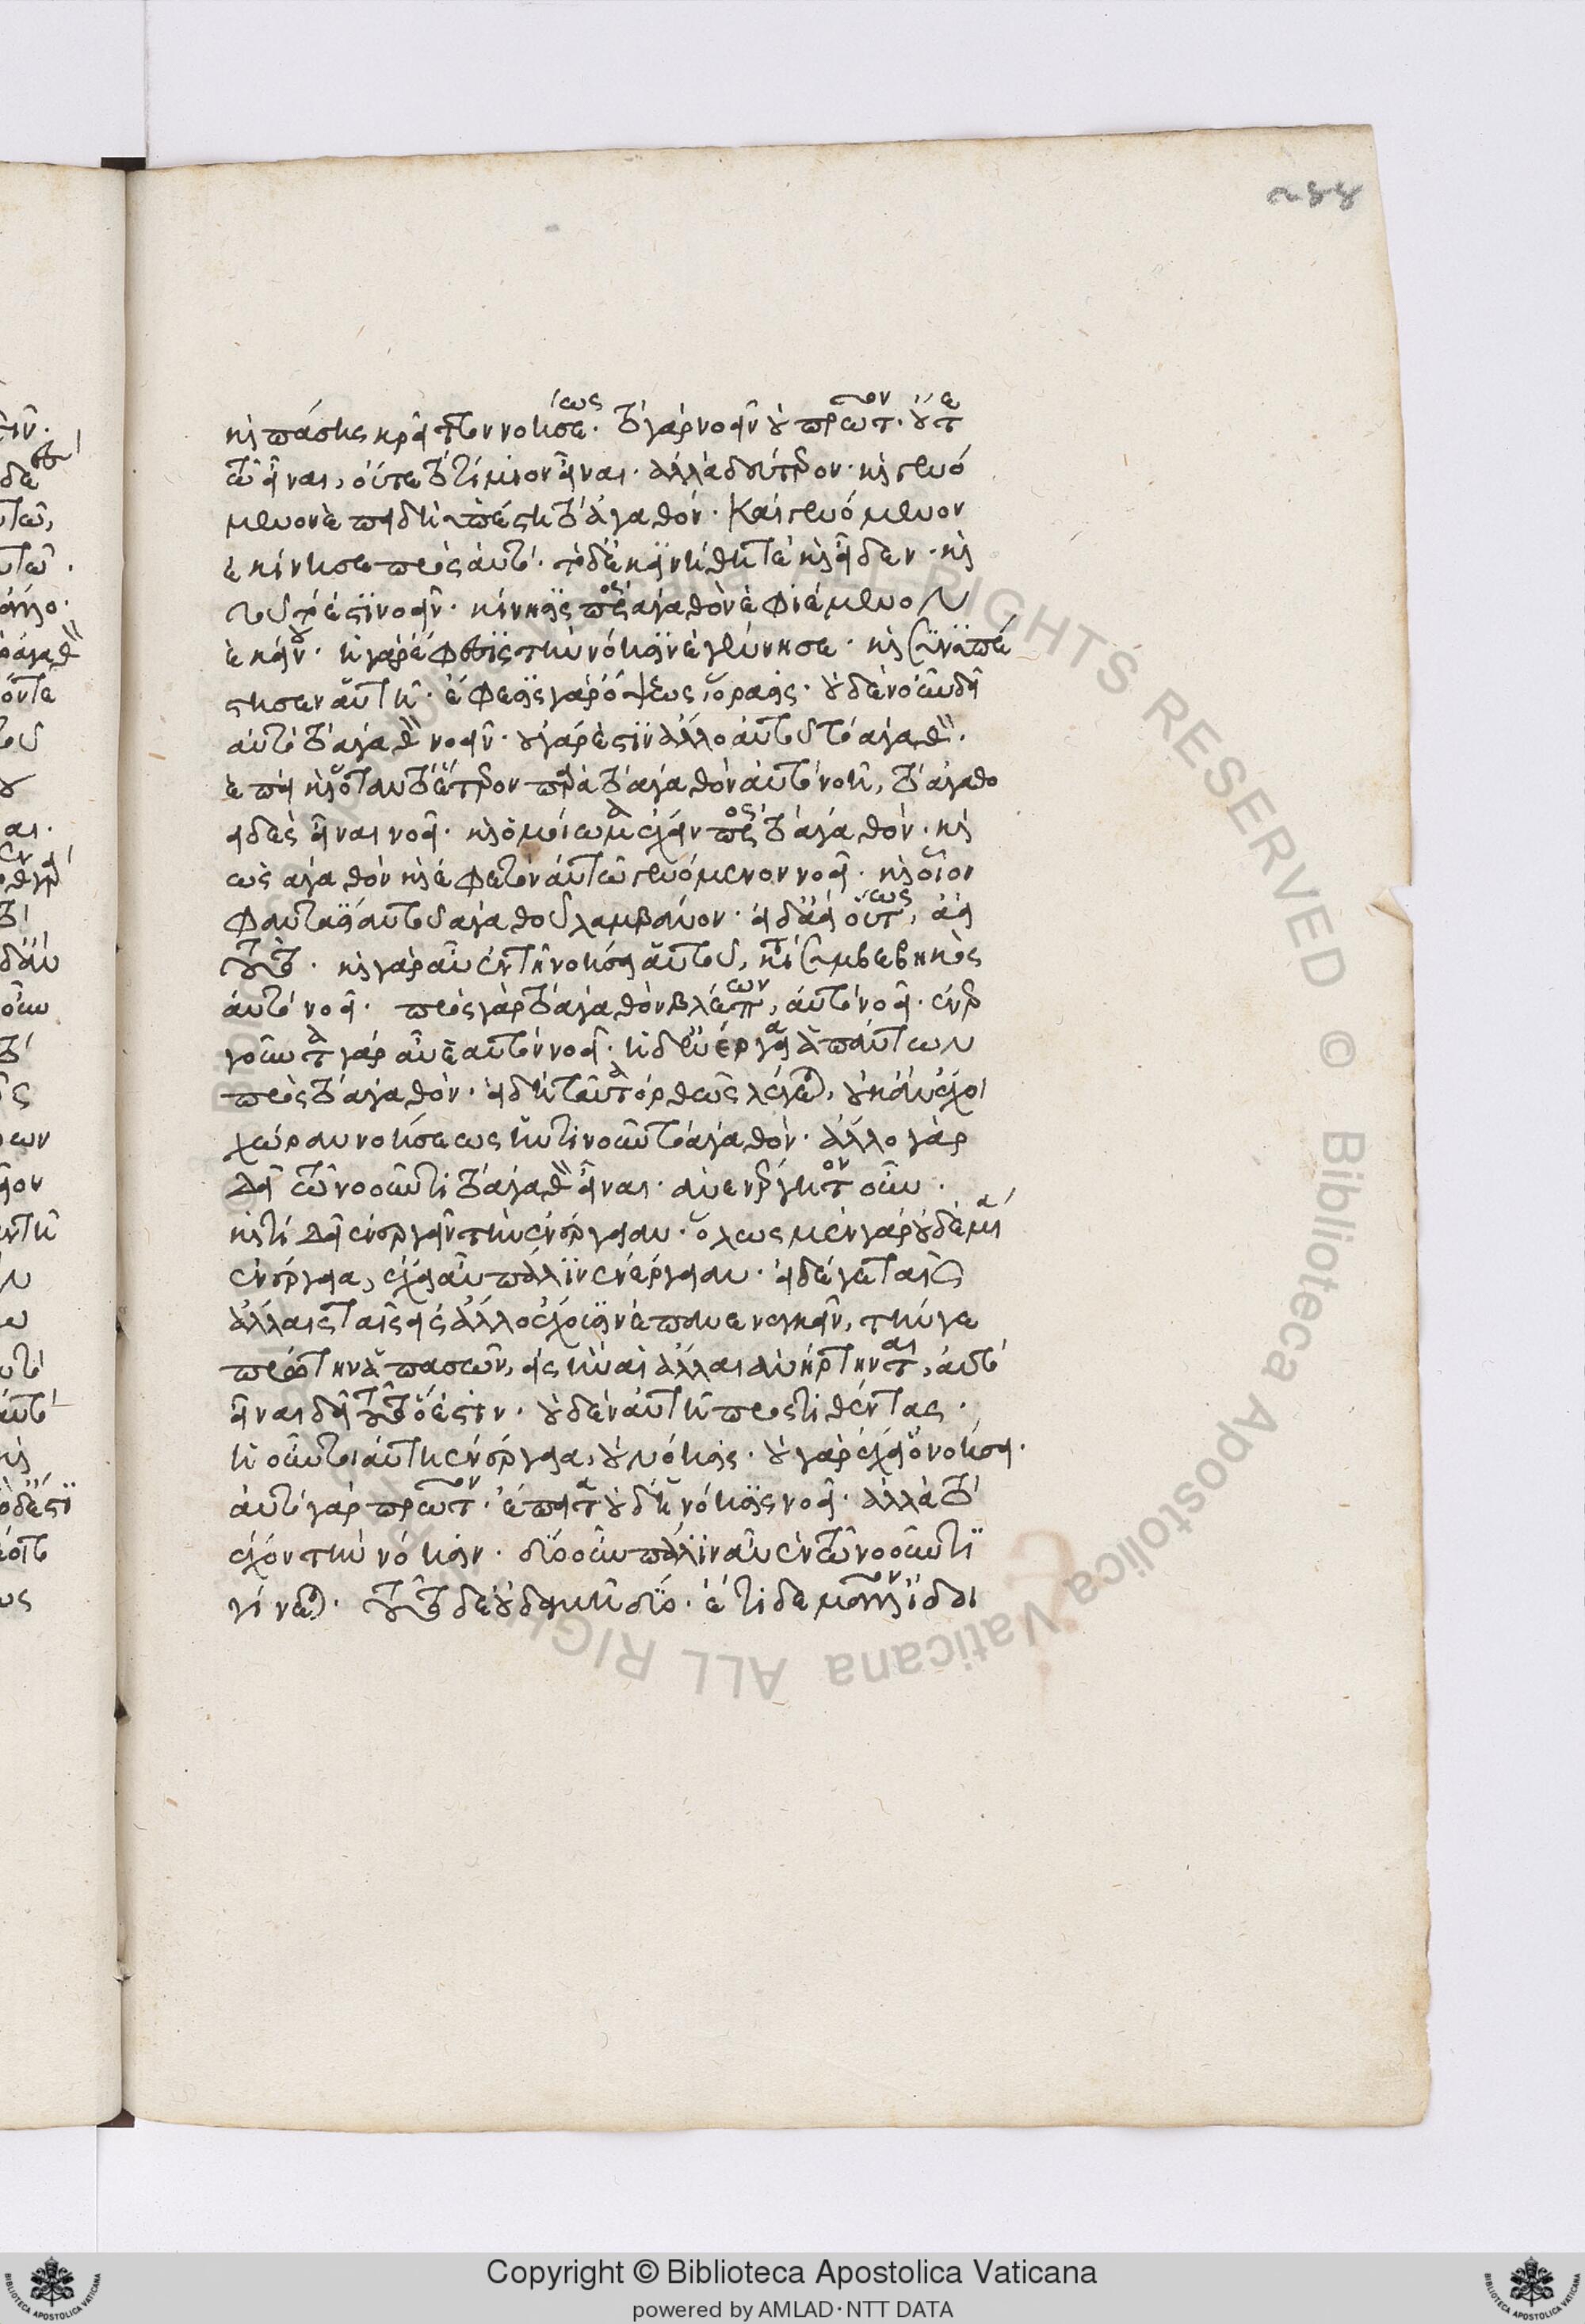 καὶ πάσης κρεῖττον νοήσεως. τὸ γὰρ νοεῖν οὐ πρῶτον. οὔτε
τῷ εἶναι, οὔτε τὸ τίμιον εἶναι. ἀλλὰ δεύτερον. καὶ γενό
μενον ἐπειδὴ ὑπέστη τὸ ἀγαθόν. καὶ γενόμενον
ἐκίνησε πρὸς αὐτό. τὸ δὲ κινήθη τὲ καὶ εἶδεν. καὶ
τοῦτό ἐστι νοεῖν. κίνησις πρὸς ἀγαθὸν ἐφιέμενον
ἐκείνου. ἡ γὰρ ἔφεσις τὴν νόησιν ἐγέννησε. καὶ συνυπέ
στησεν αὐτῇ. ἔφεσις γὰρ ὄψεως ὅρασις. οὐδὲν οὖν δεῖ
αὐτὸ τὸ ἀγαθὸν νοεῖν. οὐ γὰρ ἐστὶν ἄλλο αὐτοῦ τὸ ἀγαθόν.
ἐπεὶ καὶ ὅταν τὸ ἕτερον παρὰ τὸ ἀγαθὸν αὐτὸ νοῇ, τὸ ἀγαθο
ειδὲς εἶναι νοεῖ. καὶ ὁμοίωμα ἔχειν πρὸς τὸ ἀγαθόν. καὶ
ὡς ἀγαθὸν καὶ ἐφετὸν αὐτῷ γενόμενον νοεῖ. καὶ οἷον
φαντασίαν τοῦ ἀγαθοῦ λαμβάνον. εἰ δ' ἀεὶ οὕτως, ἀεὶ
τοῦτο. καὶ γὰρ αὖ ἐν τῇ νοήσει αὐτοῦ, κατὰ συμβεβηκὸς
αὐτὸ νοεῖ. πρὸς γὰρ τὸ ἀγαθὸν βλέπων, αὐτὸ νοεῖ. ἐνερ
γοῦντα γὰρ αὖ ἑαυτὸν νοεῖ. ἡ δ' ἐνέργεια ἁπάντων
πρὸς τὸ ἀγαθόν. εἰ δὴ ταῦτα ὀρθῶς λέγεται, οὐκ ἂν ἔχοι
χώραν νοήσεως ἡντινοῦν τὸ ἀγαθόν. ἄλλο γὰρ
δεῖ τῷ νοοῦντι τὸ ἀγαθὸν εἶναι. ἀνενέργητον οὖν.
καὶ τί δεῖ ἐνεργεῖν τὴν ἐνέργειαν. ὅλως μὲν γὰρ οὐδεμία
ἐνέργεια, ἔχει αὖ πάλιν ἐνέργειαν. εἰ δέ γε ταῖς
ἄλλαις ταῖς εἰς ἄλλο ἔχουσιν ἐπανενεγκεῖν, τήν γε
πρώτην ἁπασῶν, εἰς ἣν αἱ ἄλλαι ἀνήρτηνται, αὐτὸ
εἶναι δεῖ τοῦτο ὅ ἐστιν. οὐδὲν αὐτῇ προστιθέντας.
ἡ οὖν τοιαύτη ἐνέργεια, οὐ νόησις. οὐ γὰρ ἔχει ὃ νοήσει.
αὐτὸ γὰρ πρῶτον. ἔπειτα οὐδ' ἡ νόησις νοεῖ. ἀλλὰ τὸ
ἔχον τὴν νόησιν. δύο οὖν πάλιν αὖ ἐν τῷ νοοῦντι
γίνεται. τοῦτο δὲ οὐδαμῇ δύο. ἔτι δὲ μᾶλλον ἴδοι
Copyright © Biblioteca Apostolica Vaticana
powered by AMLAD·NTT DATA